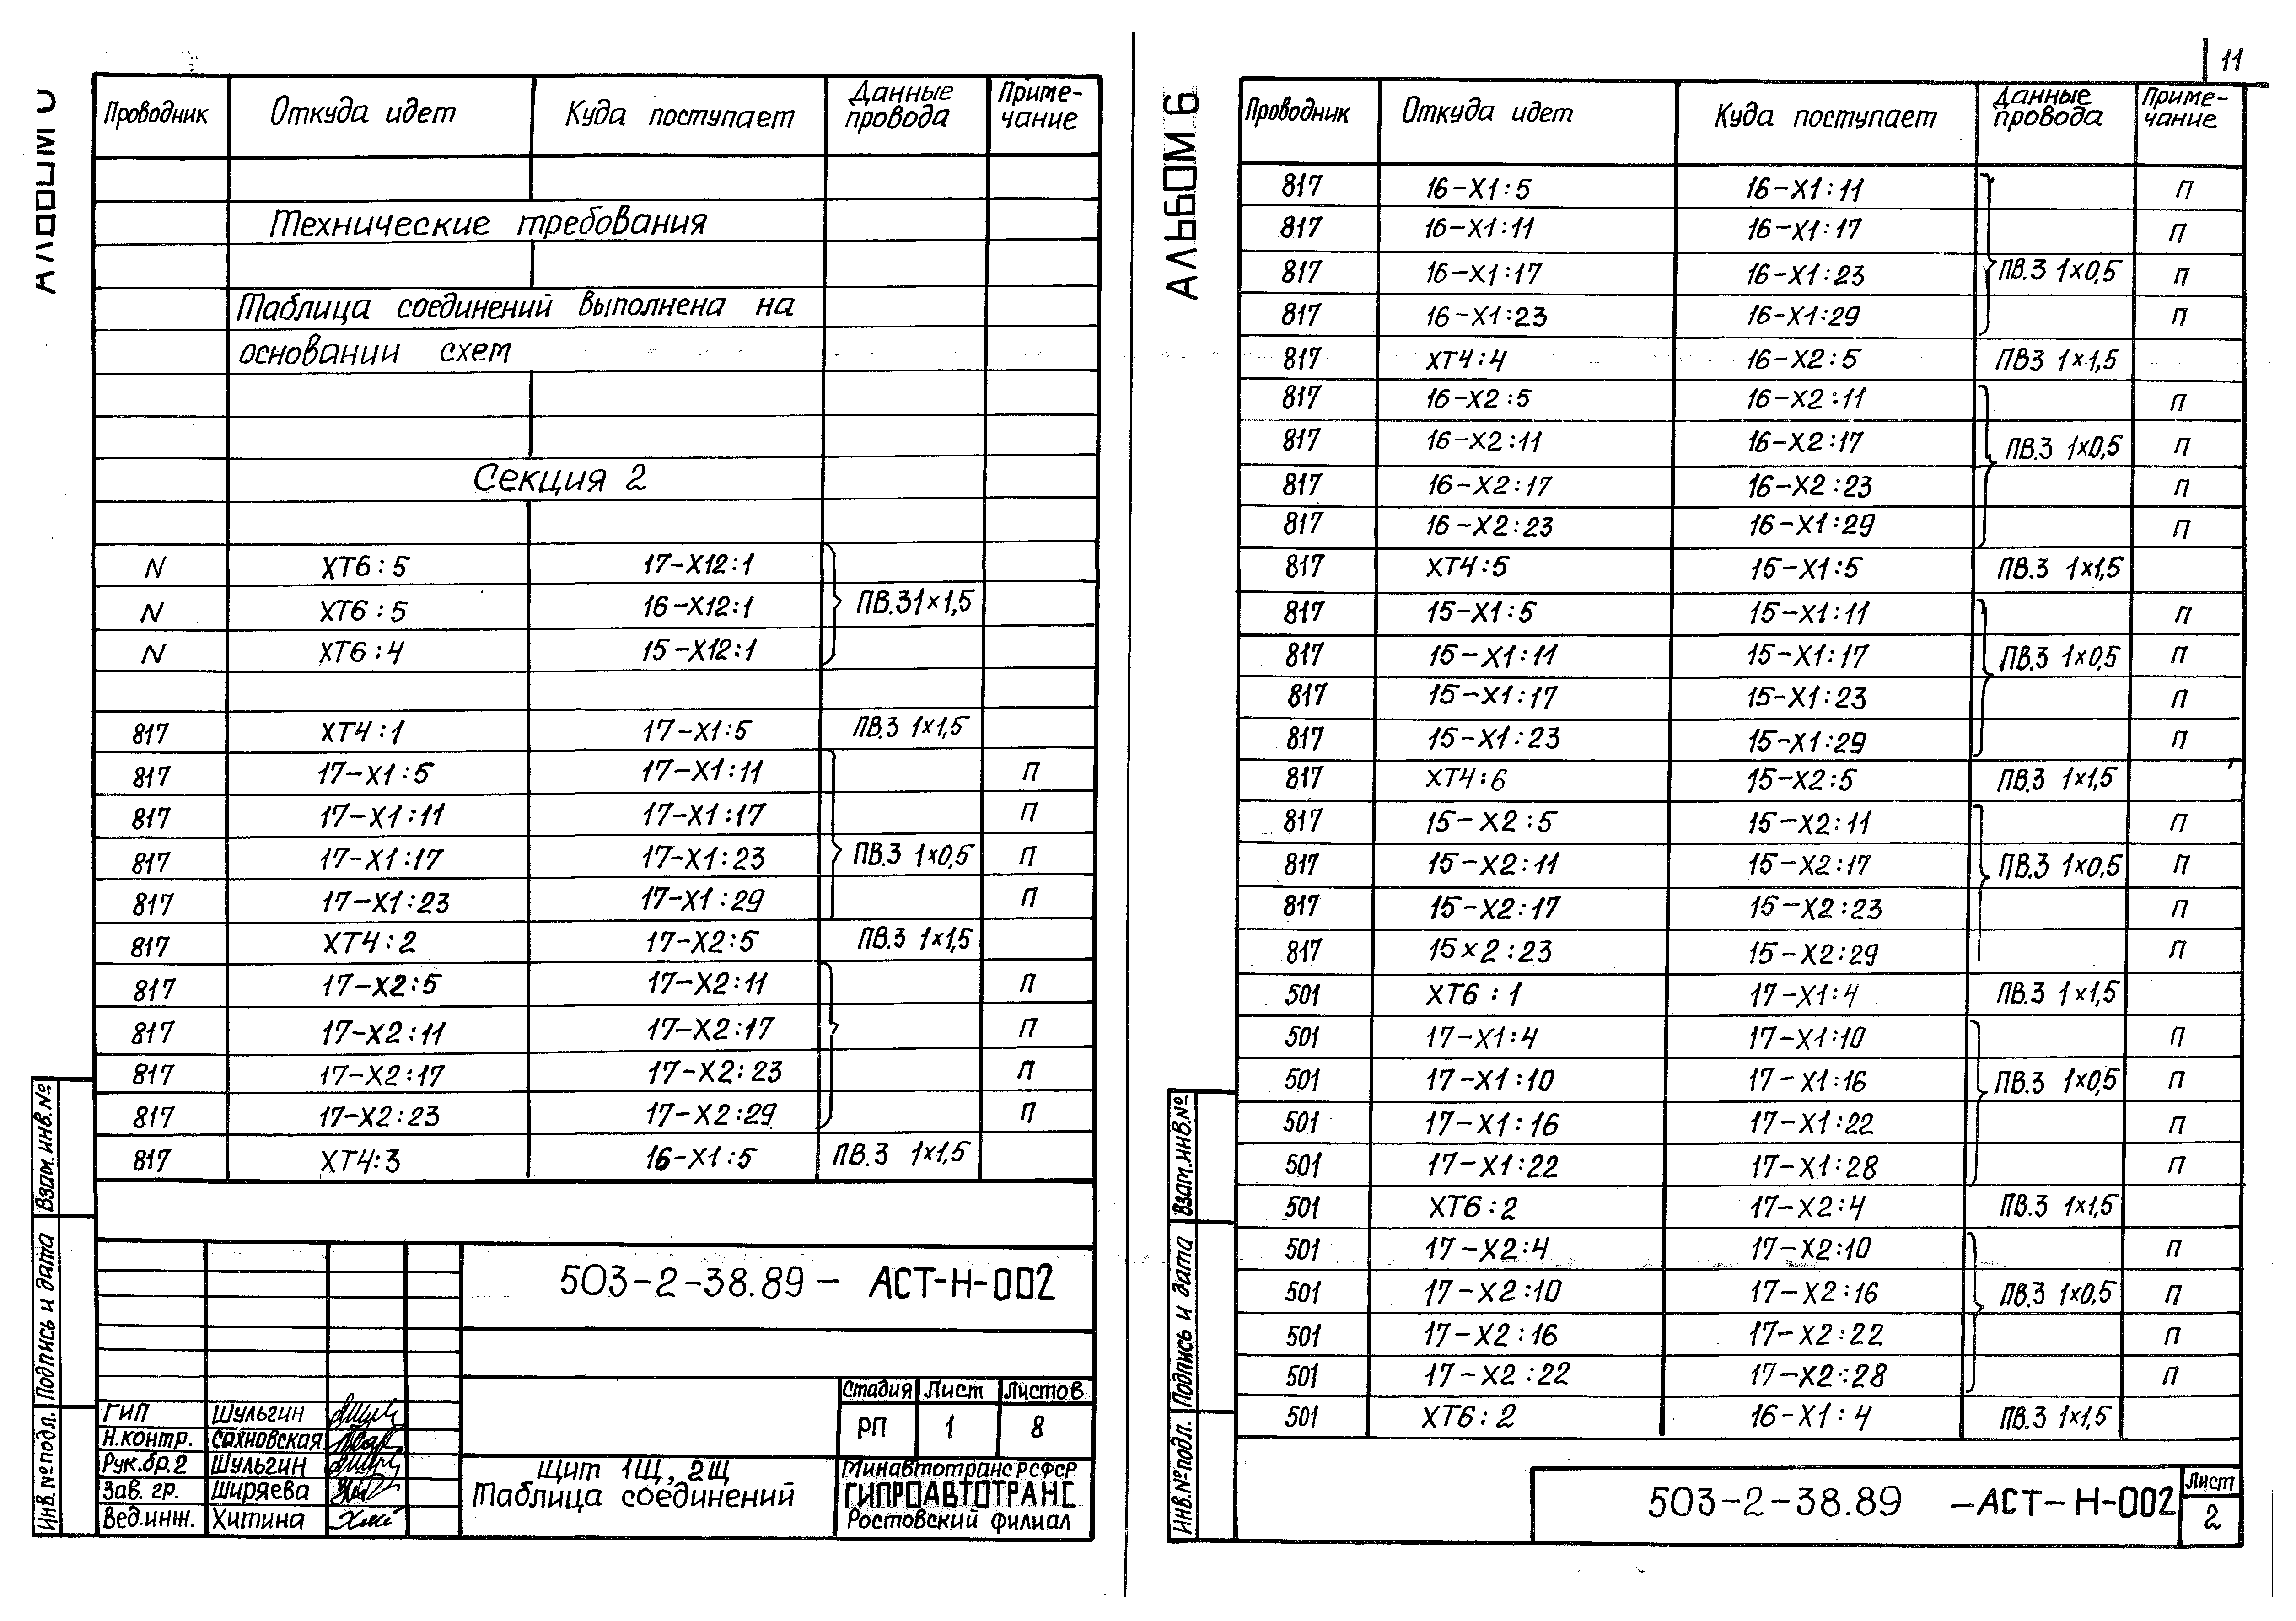 АЛЬБОМ 6
Проводник Откуда идет Куда поступает Данные провода Приме-чание
Технические требования
Таблица соединений выполнена на
основании схем
Секция 2
N ХТ6:5 17-Х12:1
N ХТ6:5 16-Х12:1 ПВ.3 1×1,5
N ХТ6:4 15-Х12:1
817 ХТ4:1 17-Х1:5 ПВ.3 1×1,5
817 17-Х1:5 17-Х1:11 П
817 17-Х1:11 17-Х1:17 П
817 17-Х1:17 17-Х1:23 ПВ.3 1×0,5 П
817 17-Х1:23 17-Х1:29 П
817 ХТ4:2 17-Х2:5 ПВ.3 1×1,5
817 17-Х2:5 17-Х2:11 П
817 17-Х2:11 17-Х2:17 П
817 17-Х2:17 17-Х2:23 П
817 17-Х2:23 17-Х2:29 П
817 ХТ4:3 16-Х1:5 ПВ.3 1×1,5
503-2-38.89 - АСТ-Н-002
Стадия Лист Листов
РП 1 8
ГИП Шульгин
Н.контр. Сахновская
Рук.бр.2 Шульгин
Зав. гр. Ширяева
Вед.инж. Хитина
Щит 1Щ, 2Щ
Таблица соединений
Минавтотранс РСФСР
ГИПРОАВТОТРАНС
Ростовский филиал
Инв.№ подл. Подпись и дата Взам.инв.№
11
АЛЬБОМ 6
Проводник Откуда идет Куда поступает Данные провода Приме-чание
817 16-Х1:5 16-Х1:11 П
817 16-Х1:11 16-Х1:17 П
817 16-Х1:17 16-Х1:23 ПВ.3 1×0,5 П
817 16-Х1:23 16-Х1:29 П
817 ХТ4:4 16-Х2:5 ПВ3 1×1,5
817 16-Х2:5 16-Х2:11 П
817 16-Х2:11 16-Х2:17 ПВ.3 1×0,5 П
817 16-Х2:17 16-Х2:23 П
817 16-Х2:23 16-Х1:29 П
817 ХТ4:5 15-Х1:5 ПВ.3 1×1,5
817 15-Х1:5 15-Х1:11 П
817 15-Х1:11 15-Х1:17 ПВ.3 1×0,5 П
817 15-Х1:17 15-Х1:23 П
817 15-Х1:23 15-Х1:29 П
817 ХТ4:6 15-Х2:5 ПВ.3 1×1,5
817 15-Х2:5 15-Х2:11 П
817 15-Х2:11 15-Х2:17 ПВ.3 1×0,5 П
817 15-Х2:17 15-Х2:23 П
817 15х2:23 15-Х2:29 П
501 ХТ6:1 17-Х1:4 ПВ.3 1×1,5
501 17-Х1:4 17-Х1:10 П
501 17-Х1:10 17-Х1:16 ПВ.3 1×0,5 П
501 17-Х1:16 17-Х1:22 П
501 17-Х1:22 17-Х1:28 П
501 ХТ6:2 17-Х2:4 ПВ.3 1×1,5
501 17-Х2:4 17-Х2:10 П
501 17-Х2:10 17-Х2:16 ПВ.3 1×0,5 П
501 17-Х2:16 17-Х2:22 П
501 17-Х2:22 17-Х2:28 П
501 ХТ6:2 16-Х1:4 ПВ.3 1×1,5
503-2-38.89 -АСТ-Н-002
Лист
2
Инв.№ подл. Подпись и дата Взам.инв.№